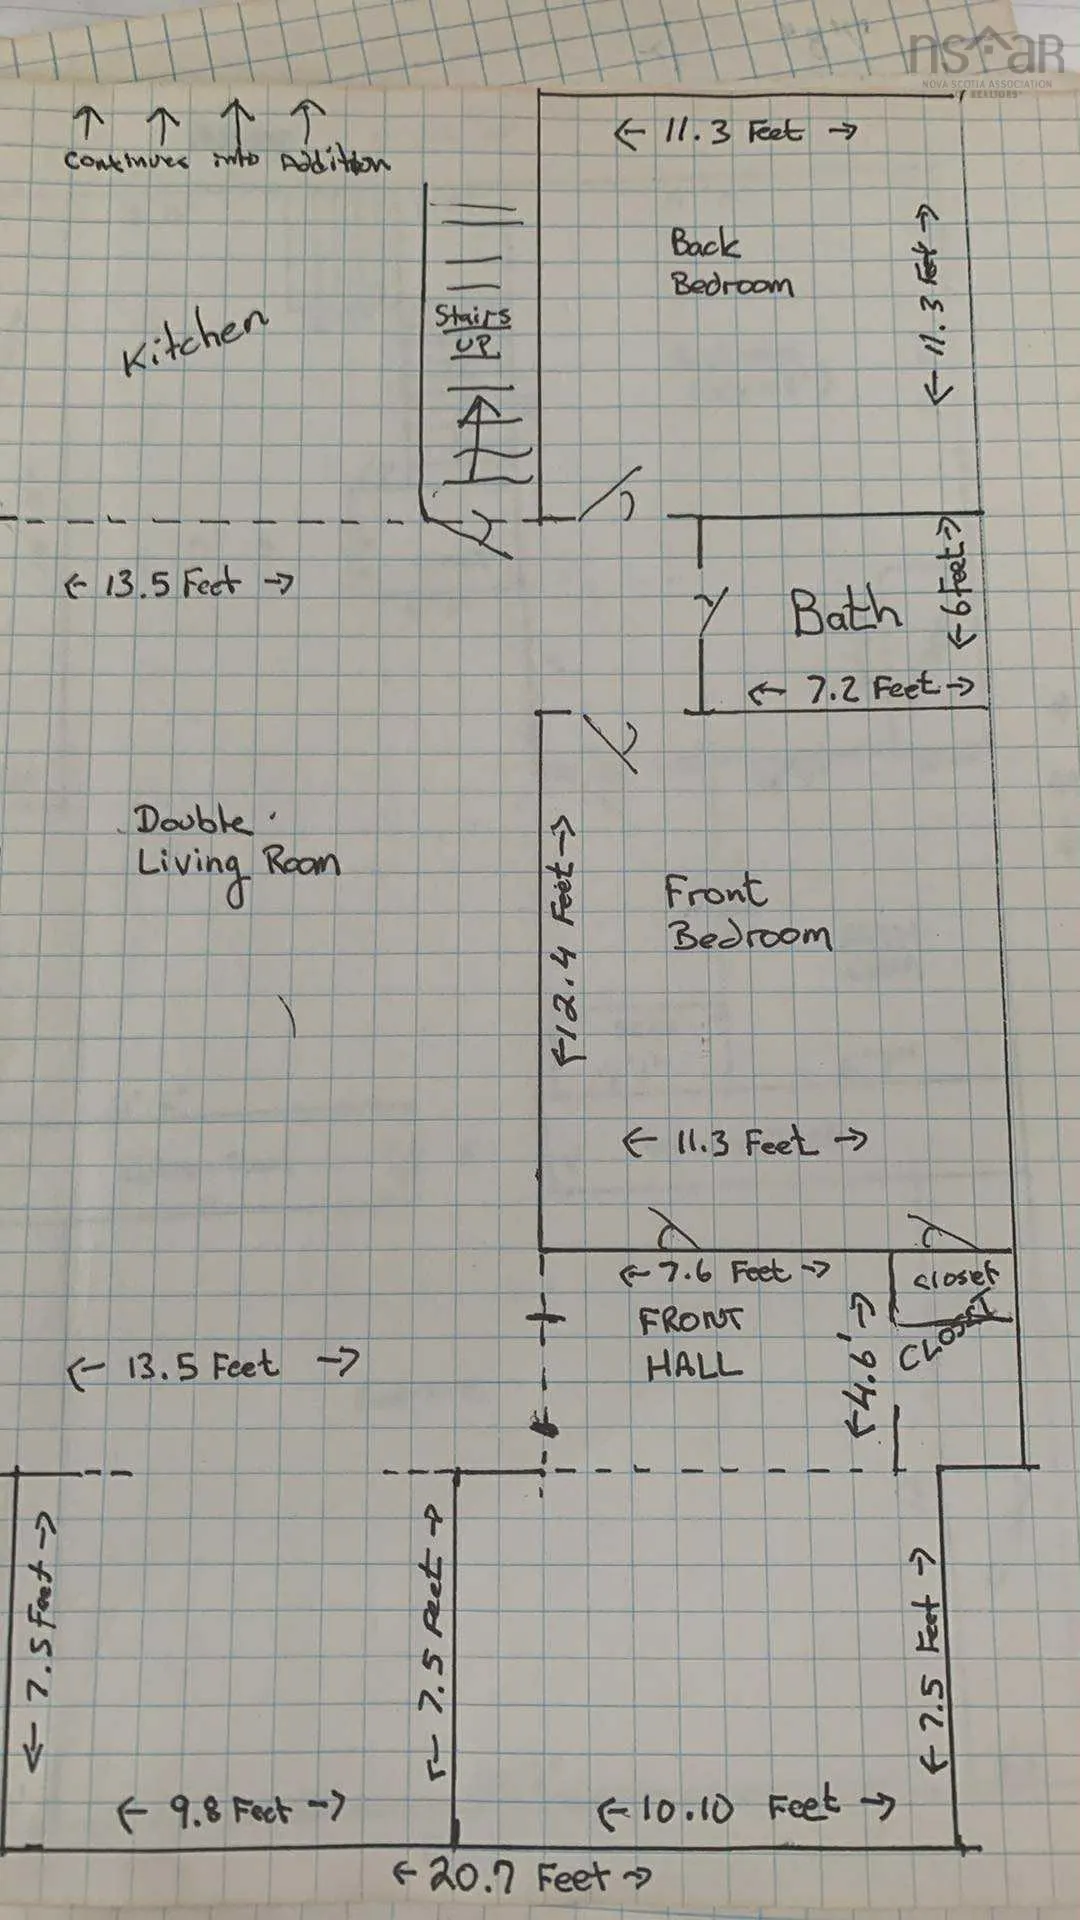 nsfar
NOVA SCOTIA ASSOCIATION
OF REALTORS®
11.3 Feet
Continues into Addition
Back
Bedroom
11.3 Feet
Kitchen
Stairs
UP
13.5 Feet
Bath
6 Feet
7.2 Feet
Double
Living Room
12.4 Feet
Front
Bedroom
11.3 Feet
7.6 Feet
Closet
FRONT
HALL
4.6'
CLOSET
13.5 Feet
7.5 Feet
7.5 Feet
7.5 Feet
9.8 Feet
10.10 Feet
20.7 Feet